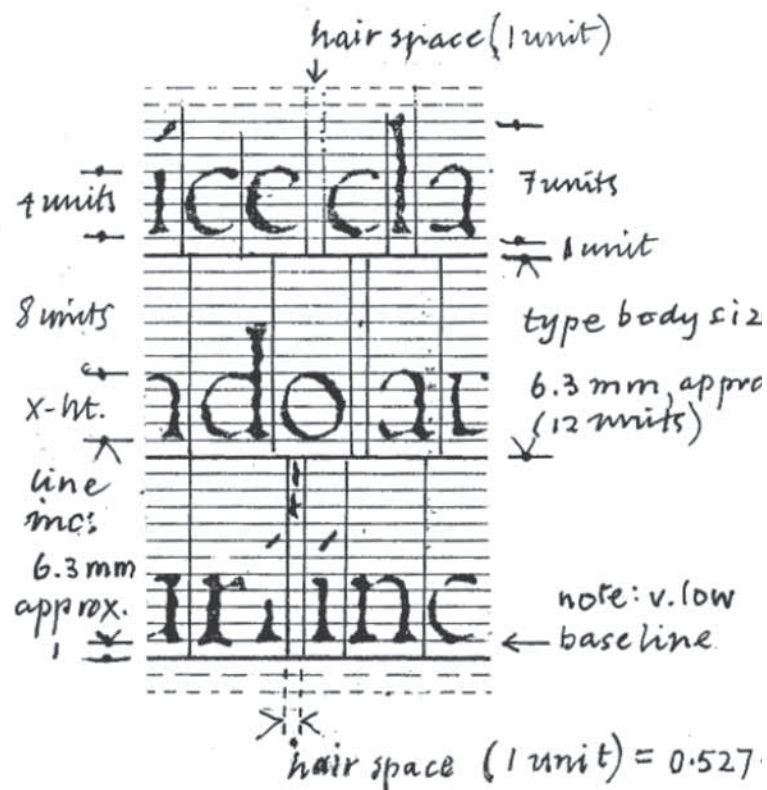 hair space (1 unit)
íce cla
4 units
7 units
1 unit
8 units
type body siz
ndo au
x-ht.
6.3 mm, appro
(12 units)
line
inc:
6.3 mm
approx.
1
note: v. low
baseline
hair space (1 unit) = 0.527